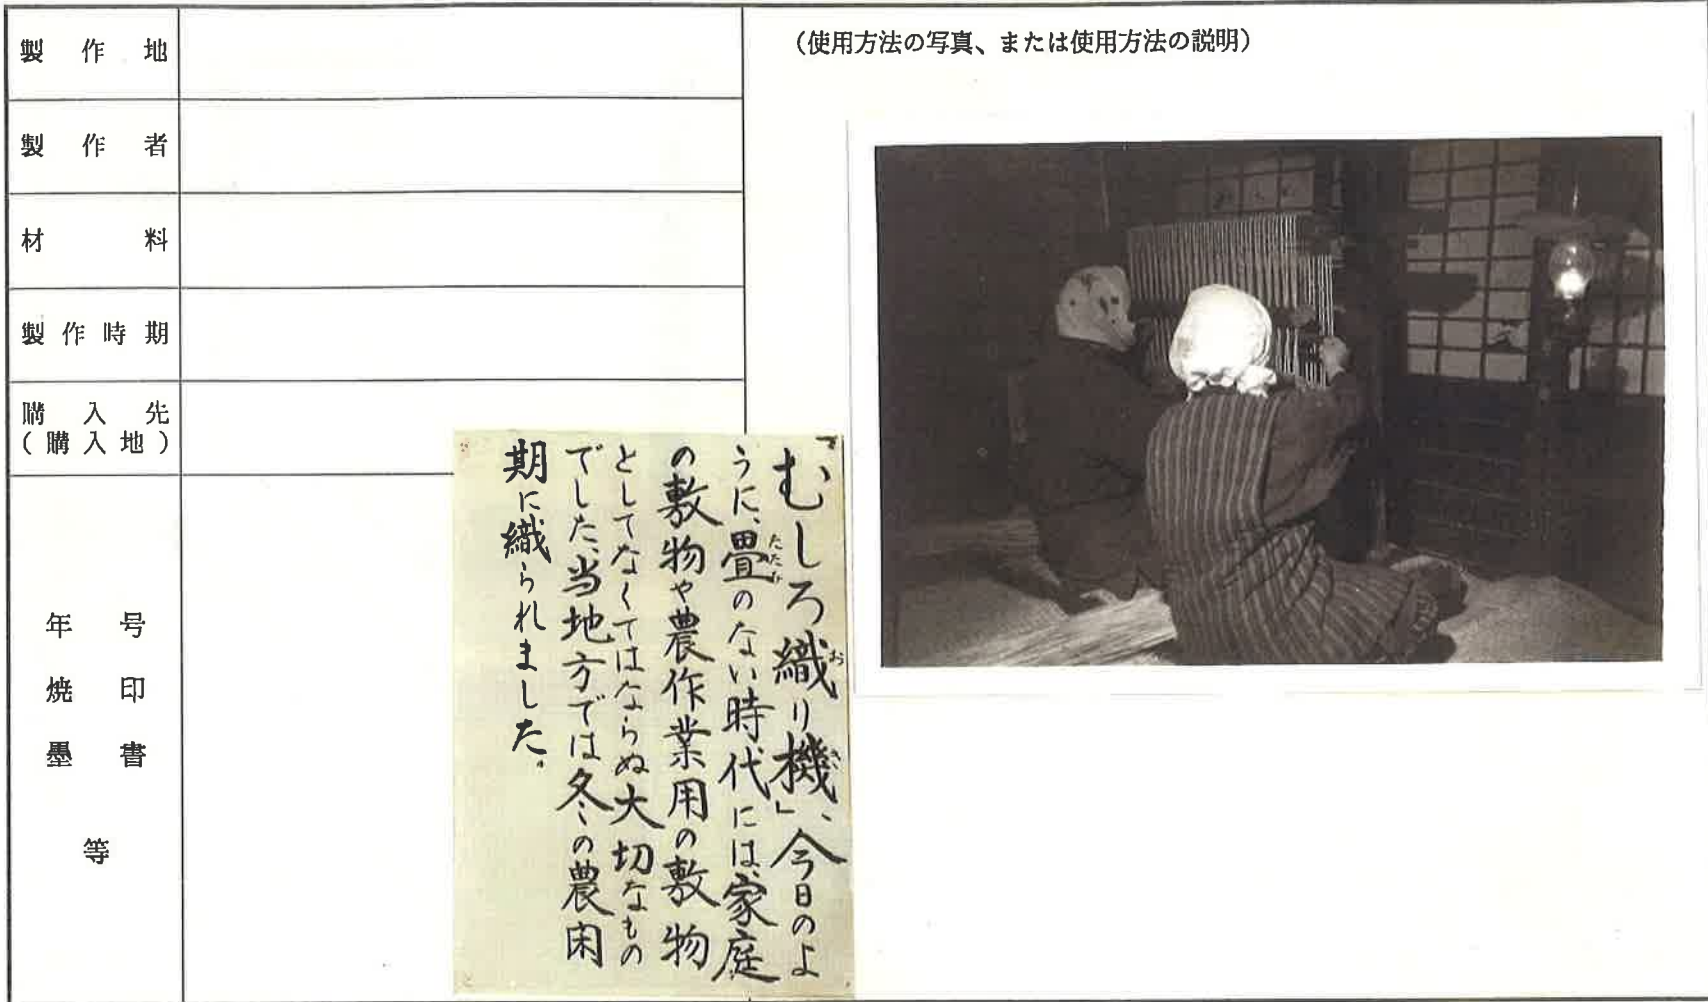 製作地
製作者
材料
製作時期
購入先
(購入地)
年号
焼印
墨書
等
(使用方法の写真、または使用方法の説明)
「むしろ織り機」、今日のよ
うに、畳のない時代には、家庭
の敷物や農作業用の敷物
としてなくてはならぬ大切なもの
でした、当地方では冬の農閑
期に織られました。